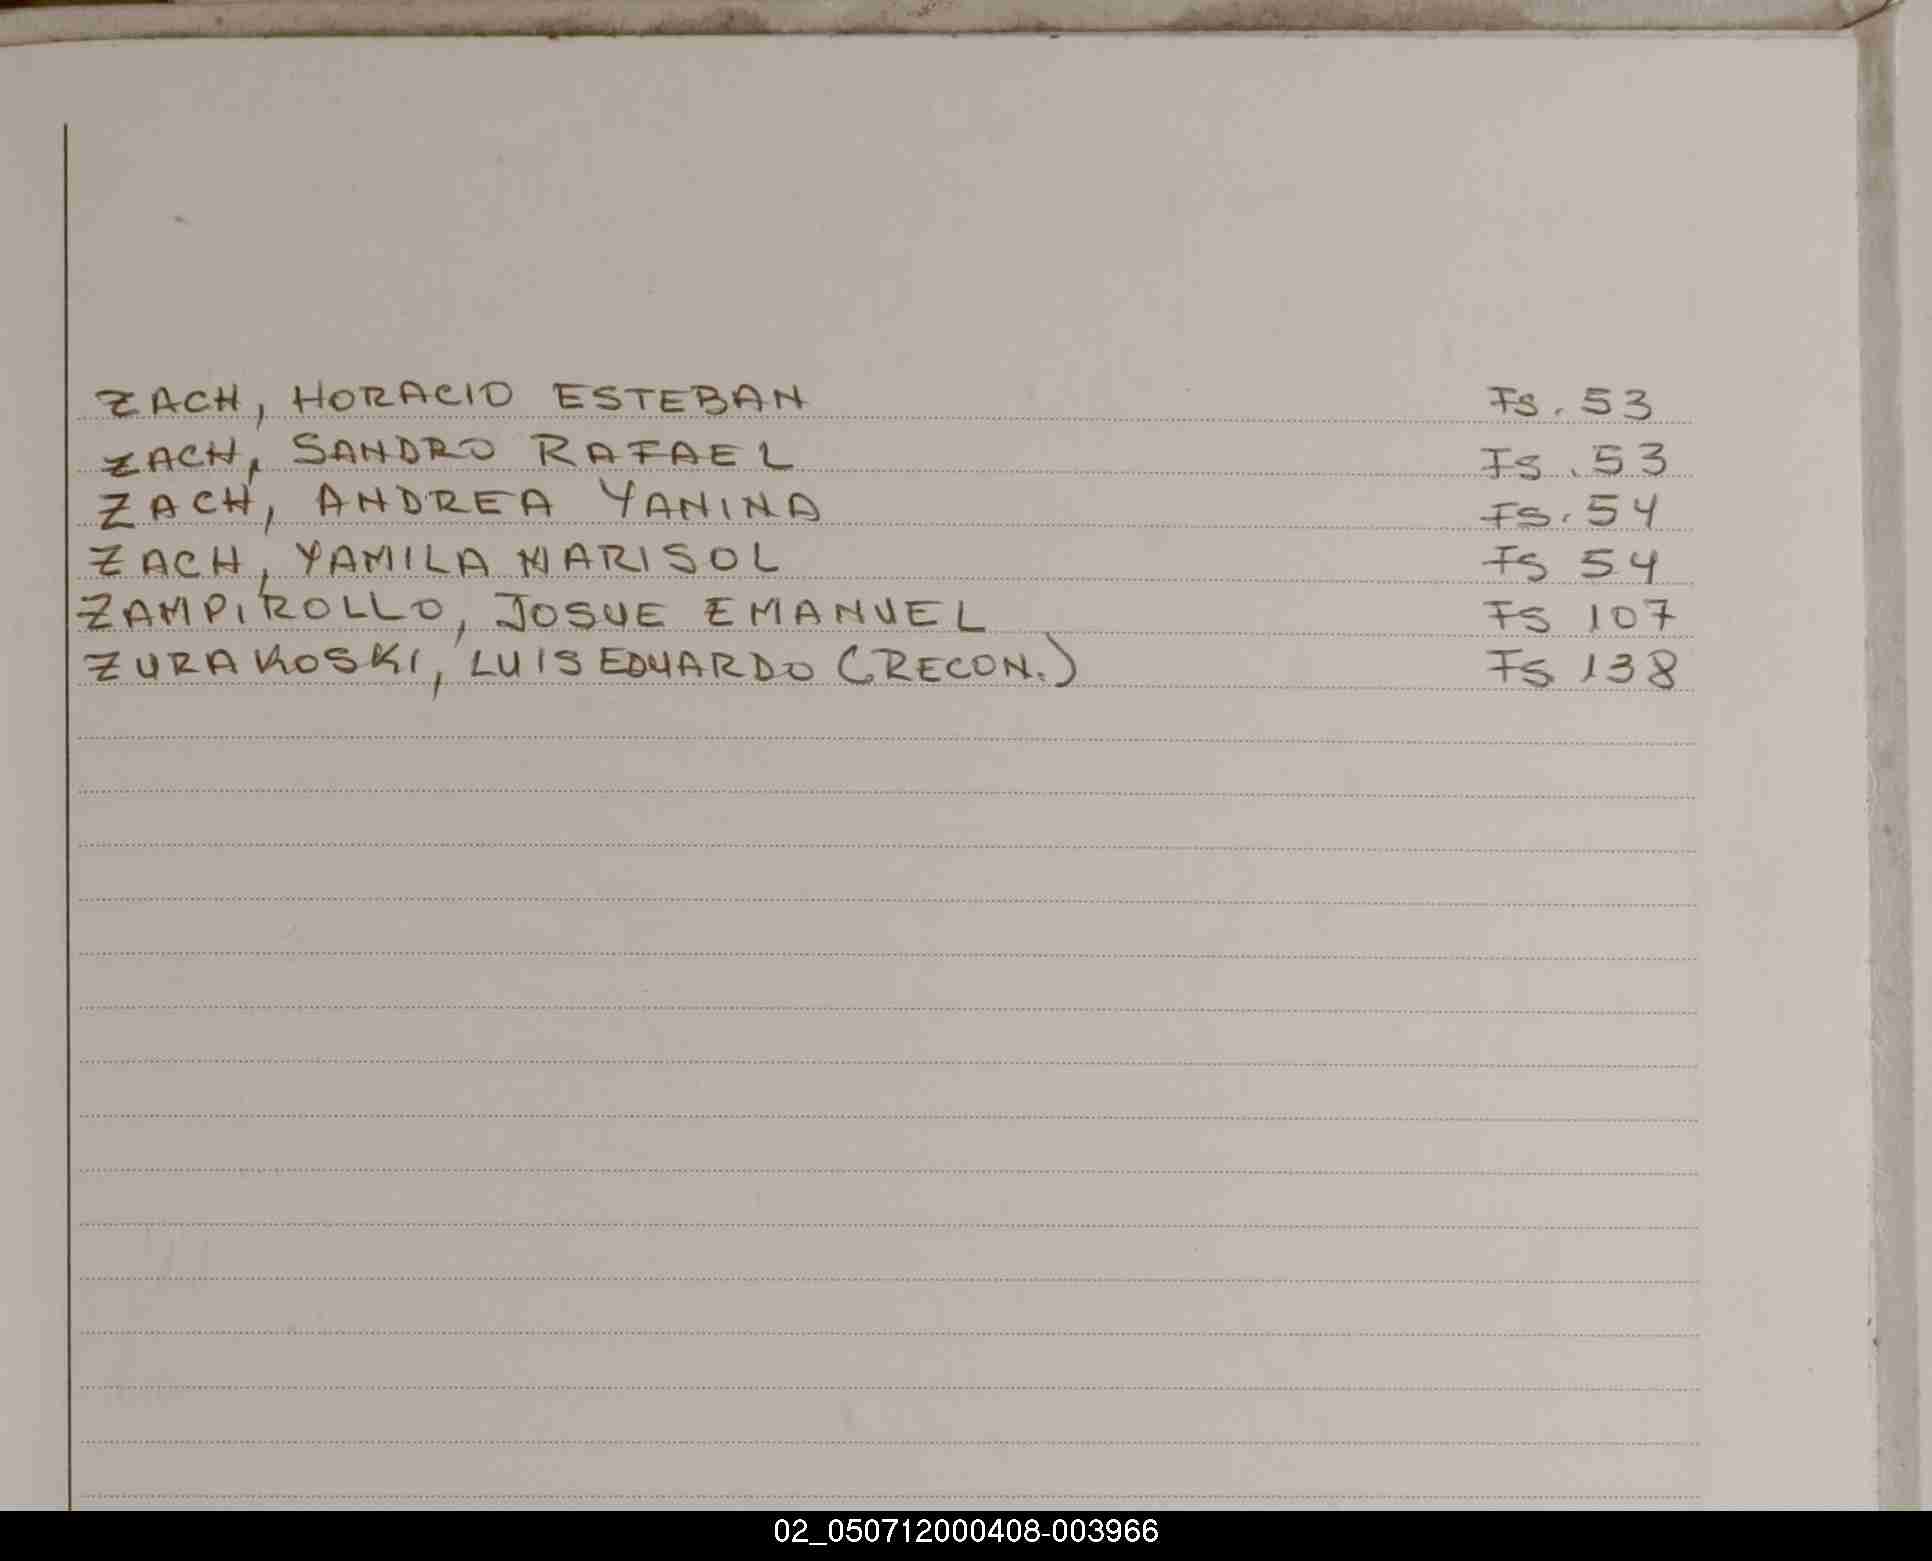 ZACH, HORACIO ESTEBAN Fs. 53
ZACH, SANDRO RAFAEL Fs. 53
ZACH, ANDREA YANINA Fs. 54
ZACH, YAMILA MARISOL Fs 54
ZAMPIROLLO, JOSUE EMANUEL Fs 107
ZURAKOSKI, LUIS EDUARDO (RECON.) Fs 138
02_050712000408-003966